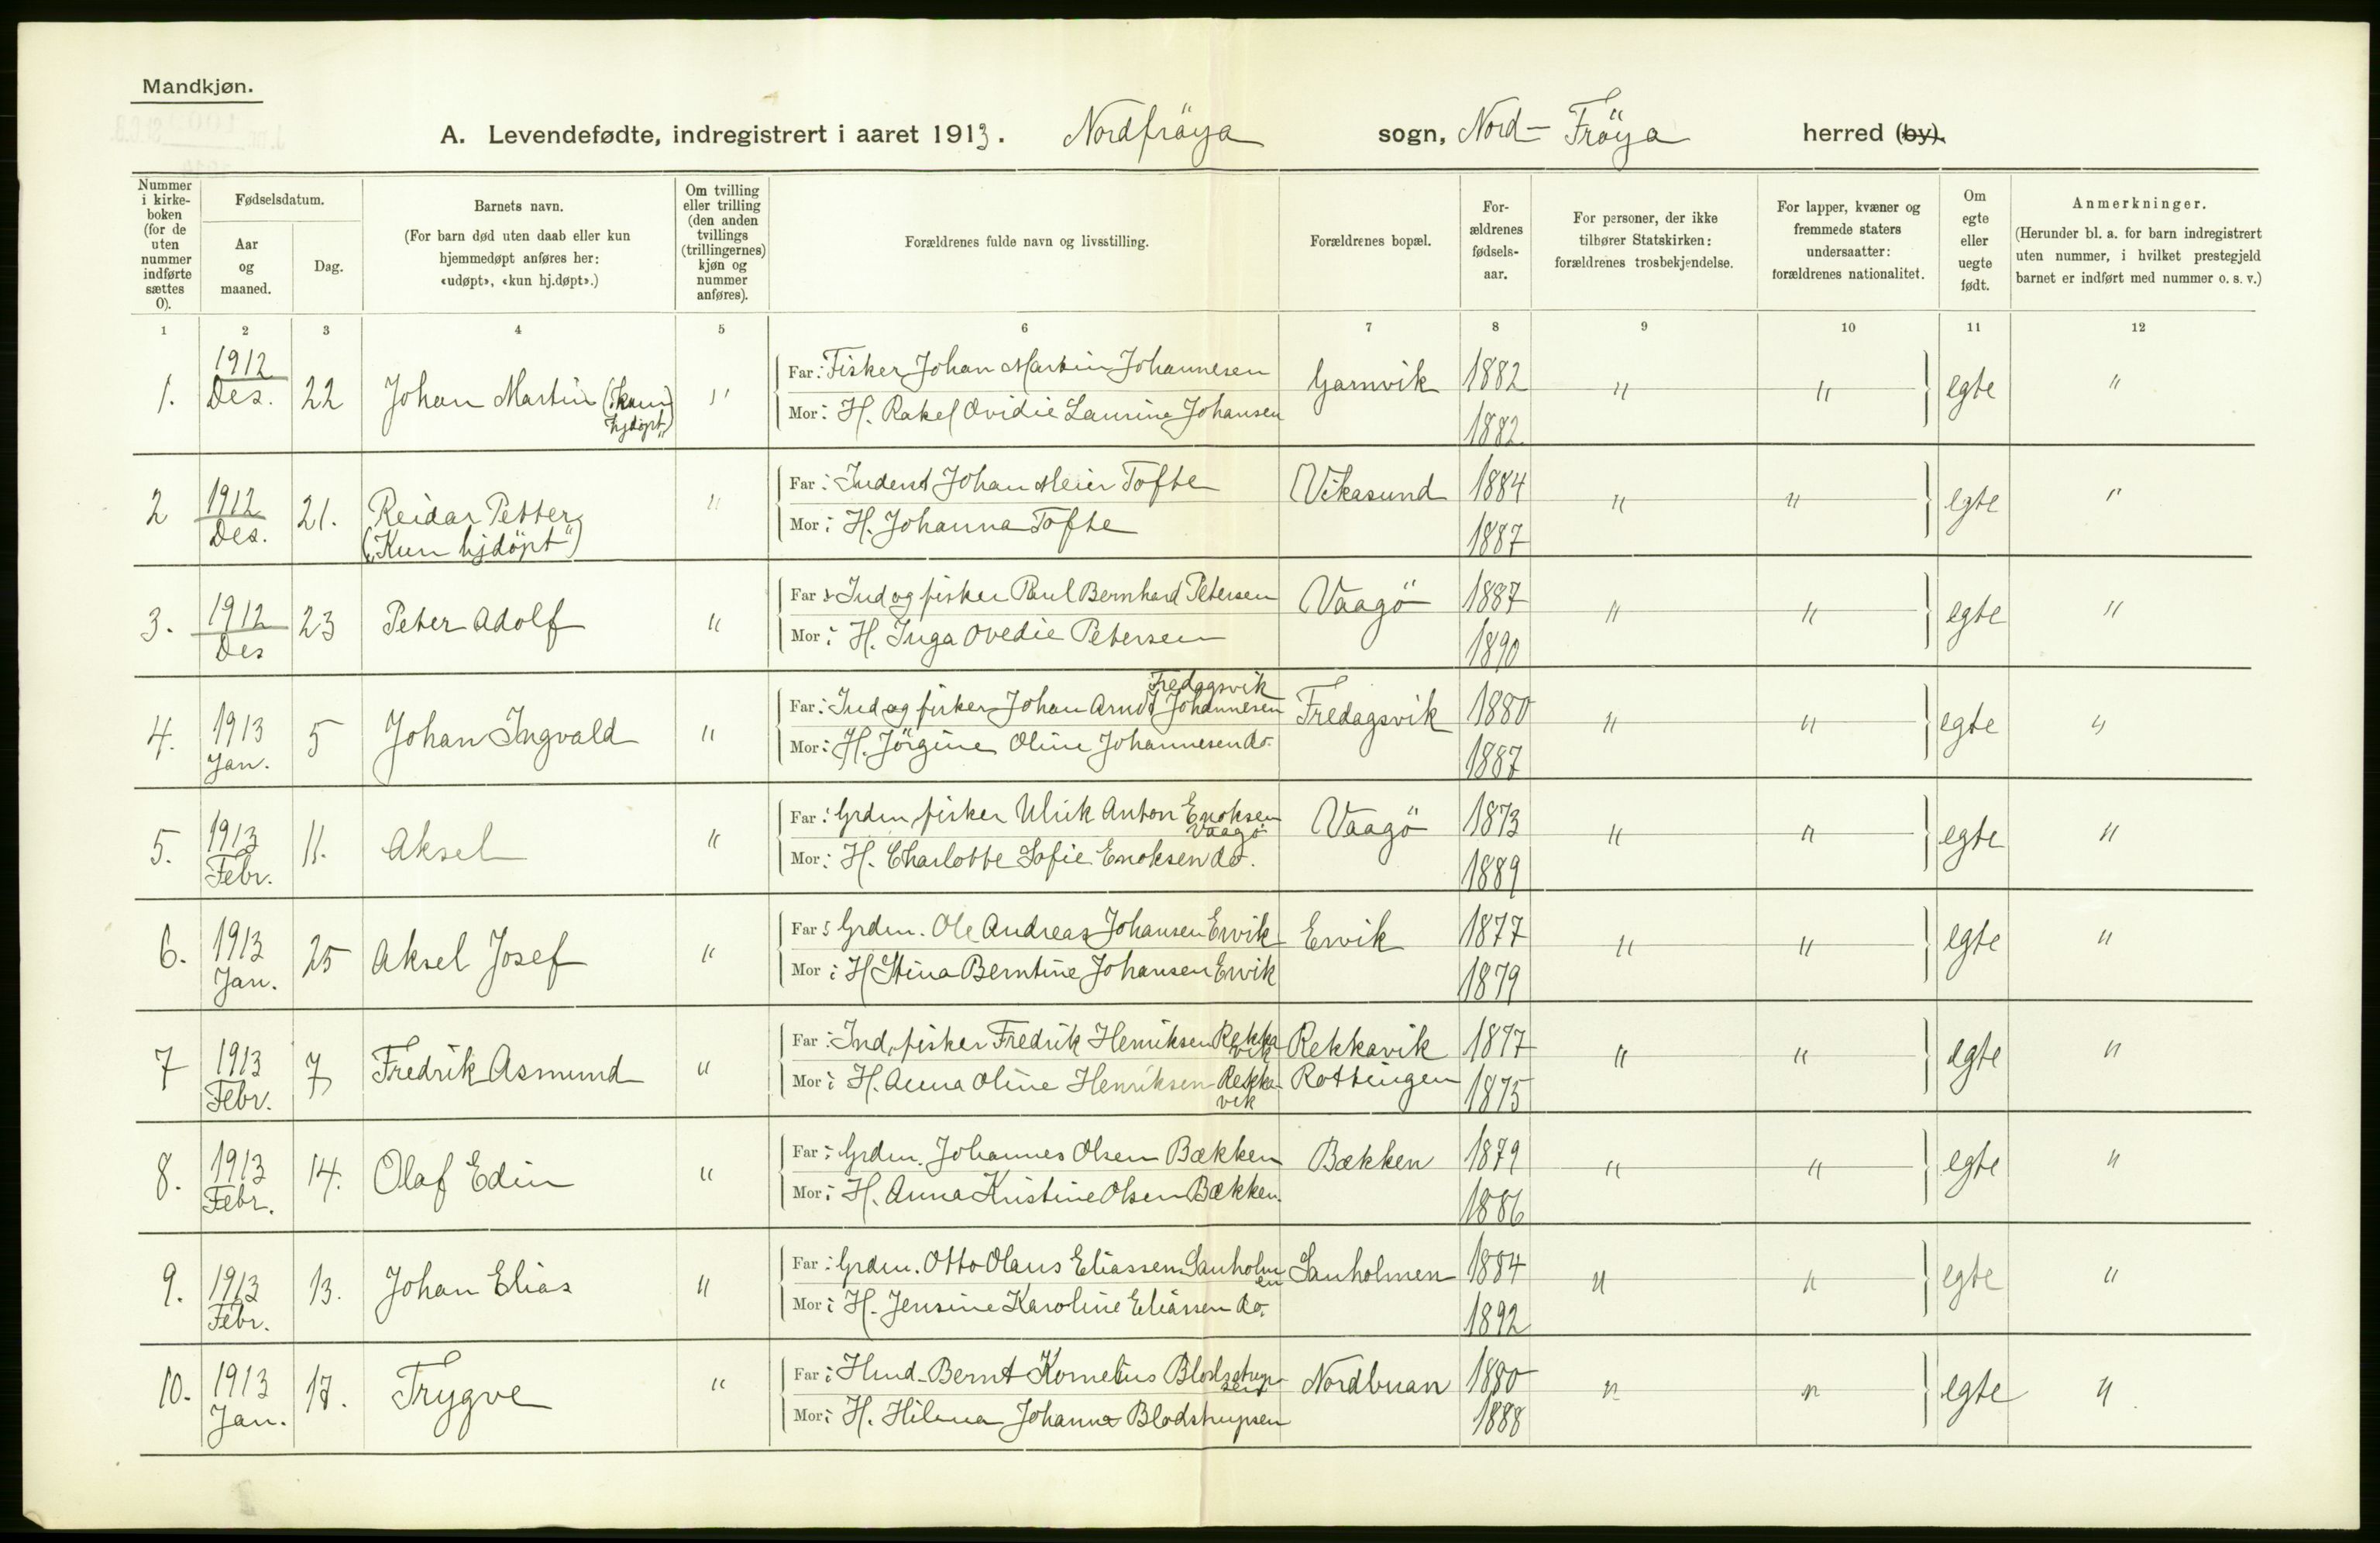 Mandkjøn.
A. Levendefødte, indregistrert i aaret 1913. Nordfröya sogn, Nord-Fröya herred (by).
Nummer i kirke-boken (for de uten nummer indførte sættes 0).
Fødselsdatum.
Aar og maaned.
Dag.
Barnets navn.
(For barn død uten daab eller kun hjemmedøpt anføres her: «udøpt», «kun hj.døpt».)
Om tvilling eller trilling (den anden tvillings (trillingernes) kjøn og nummer anføres).
Forældrenes fulde navn og livsstilling.
Forældrenes bopæl.
For-ældrenes fødsels-aar.
For personer, der ikke tilhører Statskirken: forældrenes trosbekjendelse.
For lapper, kvæner og fremmede staters undersaatter: forældrenes nationalitet.
Om egte eller uegte født.
Anmerkninger.
(Herunder bl. a. for barn indregistrert uten nummer, i hvilket prestegjeld barnet er indført med nummer o. s. v.)
1 2 3 4 5 6 7 8 9 10 11 12
1. 1912 Des. 22 Johan Martin („kun hjdöpt") " Far: Fisker Johan Martin Johannesen Garnvik 1882 " " egte "
Mor: H. Rakel Ovidie Laurine Johansen 1882
2 1912 Des. 21. Reidar Petter („Kun hjdöpt") " Far: Inderst Johan Meier Tofte Vikasund 1884 " " egte "
Mor: H. Johanna Tofte 1887
3. 1912 Des 23 Peter Adolf " Far: Ind og fisker Paul Bernhard Petersen Vaagö 1887 " " egte "
Mor: H. Inga Ovedie Petersen 1890
4. 1913 Jan. 5 Johan Ingvald " Far: Ind og fisker Johan Arndt Johannesen Fredagsvik Fredagsvik 1880 " " egte "
Mor: H. Jörgine Oline Johannesen do. 1887
5. 1913 Febr. 11. Aksel " Far: Grdm. fisker Ulrik Anton Enoksen Vaagö Vaagö 1873 " " egte "
Mor: H. Charlotte Sofie Enoksen do. 1889
6. 1913 Jan. 25 Aksel Josef " Far: Grdm. Ole Andreas Johansen Ervik Ervik 1877 " " egte "
Mor: H Stina Berntine Johansen Ervik 1879
7 1913 Febr. 7 Fredrik Asmund " Far: Ind. fisker Fredrik Henriksen Rekkavik Rekkavik 1877 " " egte "
Mor: H. Anna Oline Henriksen Rekkavik Rottingen 1875
8. 1913 Febr. 14. Olaf Edin " Far: Grdm. Johannes Olsen Bækken Bækken 1879 " " egte "
Mor: H. Anna Kristine Olsen Bækken. 1886
9. 1913 Febr. 13. Johan Elias " Far: Grdm. Otto Olaus Eliassen Sanholmen Sanholmen 1884 " " egte "
Mor: H. Jensine Karoline Eliassen do. 1892
10. 1913 Jan. 17. Trygve " Far: Hmd. Bernt Kornelius Blodstrupsen Nordbuan 1880 " " egte "
Mor: H. Hilena Johanna Blodstrupsen 1888